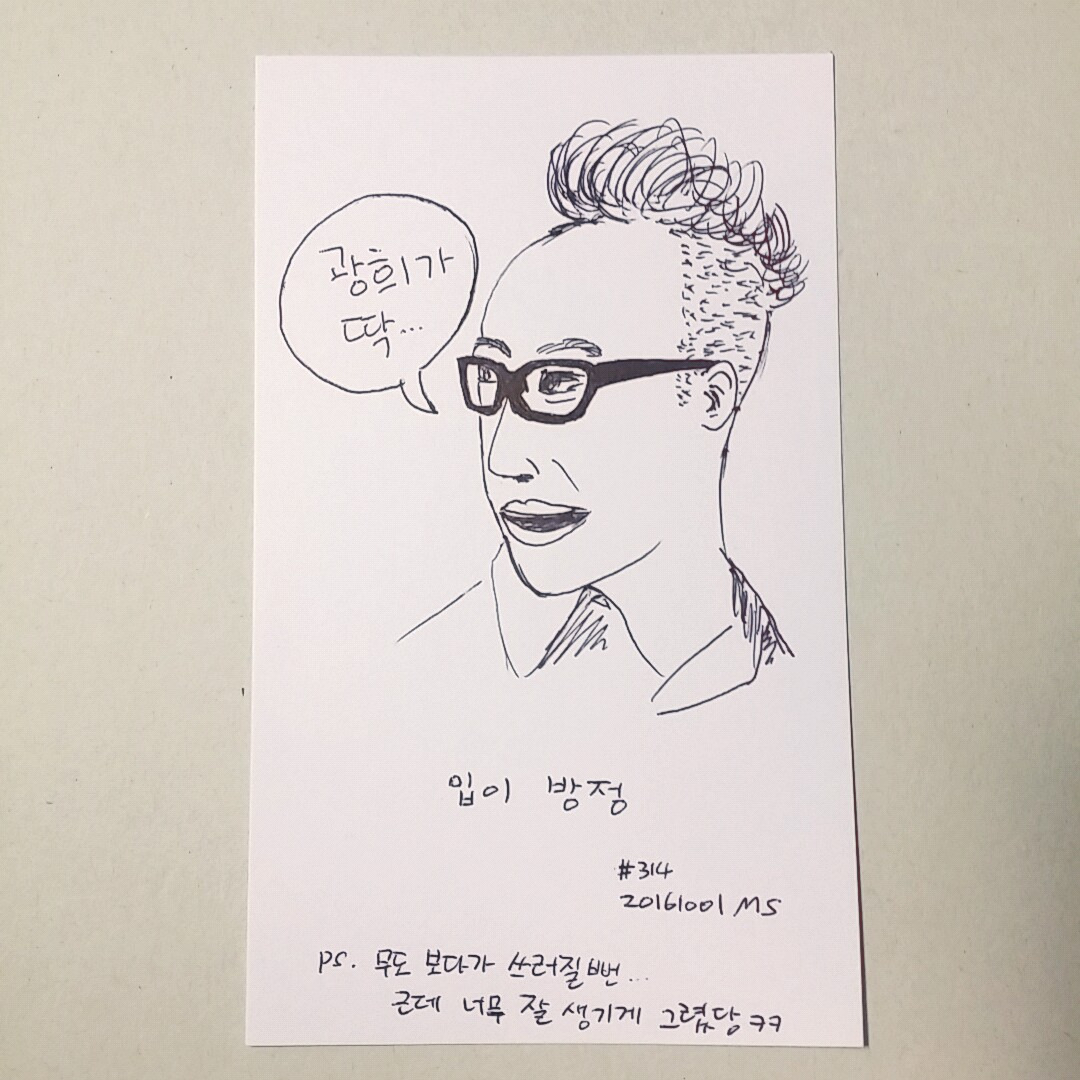 광희가
딱...
입이 방정
#314
20161001 MS
ps. 무도 보다가 쓰러질뻔...
근데 너무 잘 생기게 그렸당 ㅋㅋ